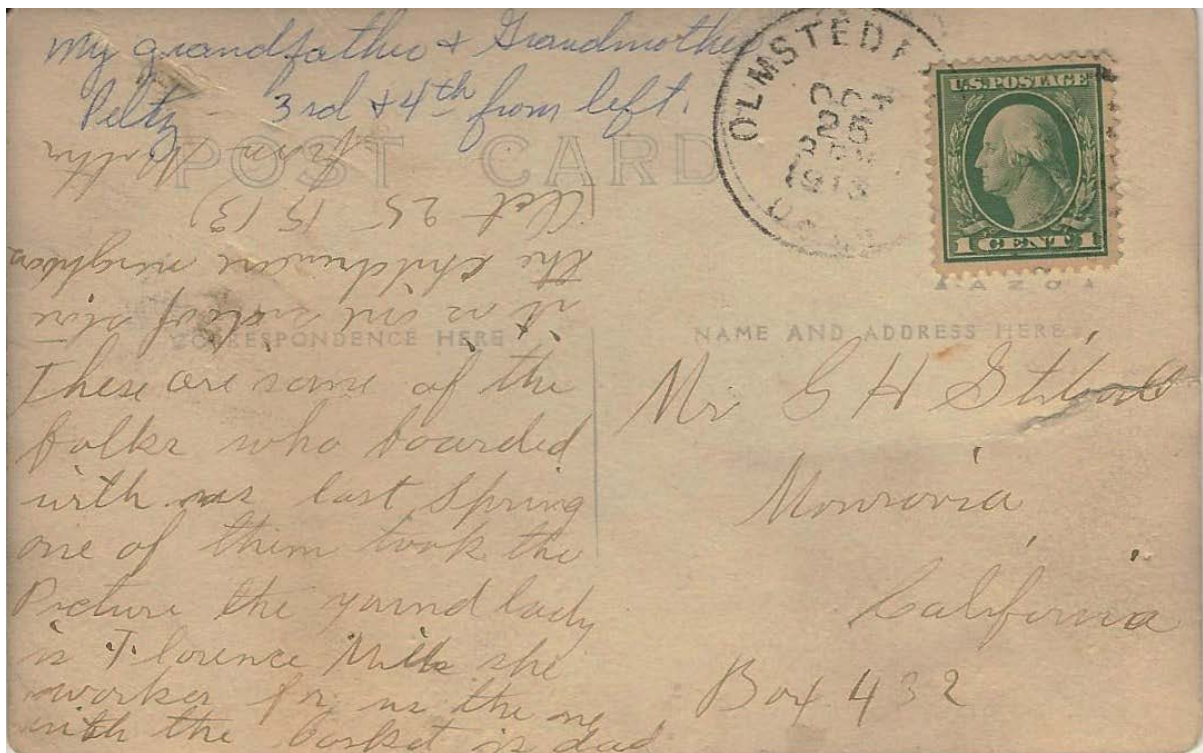 My grandfather & Grandmother
Peltz - 3rd & 4th from left.
POST CARD
OLMSTED
OC
25
PM
1913
U.S. POSTAGE
1 CENT 1
AZO
CORRESPONDENCE HERE
NAME AND ADDRESS HERE
These are some of the
folks who boarded
with us last Spring
one of them took the
Picture the yound lady
is Florence Mills she
workes for us the one
with the basket is dad
it is in front of store
the children are neighbors
Oct 25 1913)
from Mother
Mr G H
Monrovia
California
Box 432